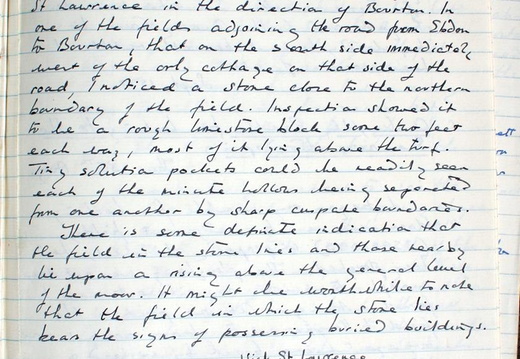 St Lawrence in the direction of Bourton. In
one of the fields adjoining the road from Ebdon
to Bourton, that on the south side immediately
west of the only cottage on that side of the
road, I noticed a stone close to the northern
boundary of the field. Inspection showed it
to be a rough limestone block some two feet
each way, most of it lying above the turf.
Tiny solution pockets could be readily seen
each of the minute hollows being seperated
from one another by sharp cuspate boundaries.
There is some definite indication that
the field in the stone lies and those nearby
lie upon a rising above the general level
of the moor. It might be worthwhile to note
that the field in which the stone lies
bears the signs of possessing buried buildings.
Wick St Lawrence